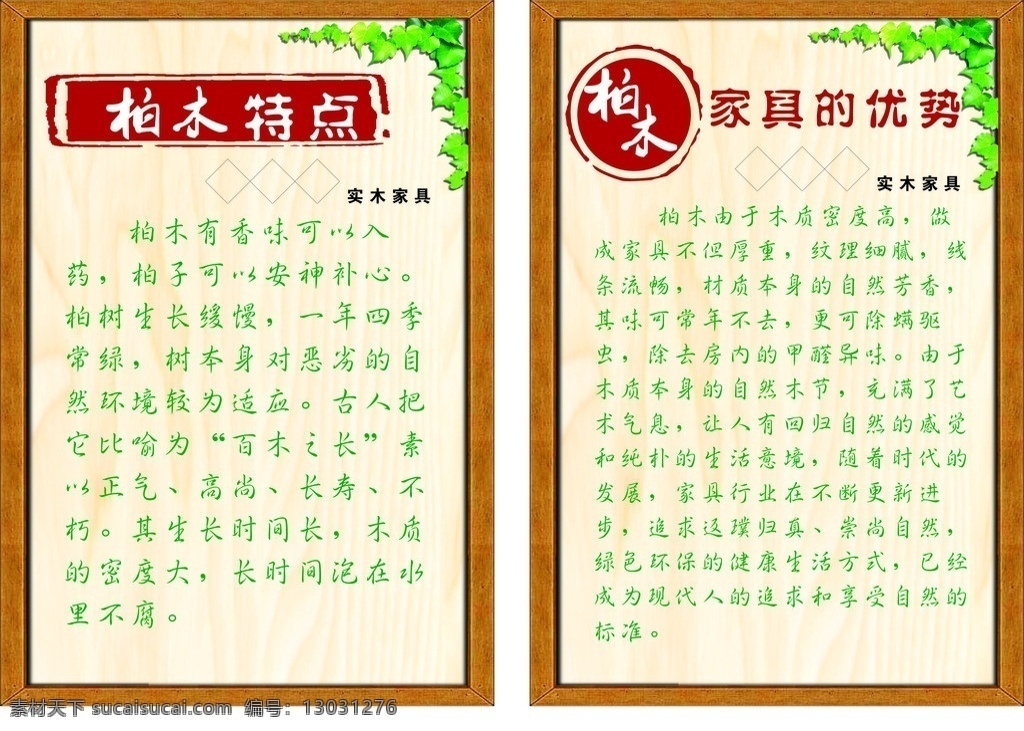 柏木特点
实木家具
柏木有香味可以入
药，柏子可以安神补心。
柏树生长缓慢，一年四季
常绿，树本身对恶劣的自
然环境较为适应。古人把
它比喻为“百木之长”素
以正气、高尚、长寿、不
朽。其生长时间长，木质
的密度大，长时间泡在水
里不腐。
柏木
家具的优势
实木家具
柏木由于木质密度高，做
成家具不但厚重，纹理细腻，线
条流畅，材质本身的自然芳香，
其味可常年不去，更可除螨驱
虫，除去房内的甲醛异味。由于
木质本身的自然木节，充满了艺
术气息，让人有回归自然的感觉
和纯朴的生活意境，随着时代的
发展，家具行业在不断更新进
步，追求返璞归真、崇尚自然，
绿色环保的健康生活方式，已经
成为现代人的追求和享受自然的
标准。
素材天下 sucaisucai.com 编号：13031276